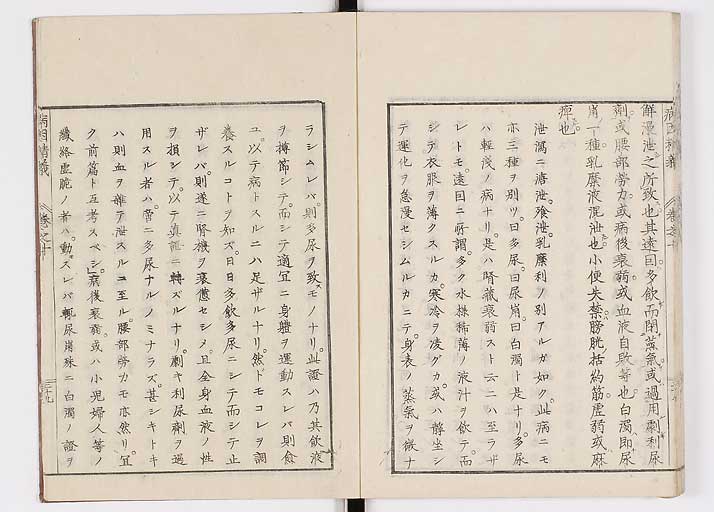 解漫泄之所致也其遠因多飲而閉蒸氣或過用劇利尿
劑或腰部勞力或病後衰弱或血液自敗等也白濁即尿
崩一種乳糜液混泄也小便失禁膀胱括約筋虛弱或麻
痺也
泄瀉ニ溏泄飱泄乳糜利ノ別アルガ如ク此病ニモ
亦三種ヲ別ツ曰多尿曰尿崩曰白濁ト是ナリ多尿
ハ輕淺ノ病ナリ是ハ腎藏衰弱スト云ニハ至ラザ
レトモ遠因ニ所謂多ク水樣稀薄ノ液汁ヲ飲テ而
シテ衣服ヲ薄クスルカ寒冷ヲ凌グカ或ハ靜坐シ
テ運化ヲ怠慢セシムルカニテ身表ノ蒸氣ヲ微ナ
ラシムレバ則多尿ヲ致スモノナリ此證ハ乃其飲液
ヲ撙節シテ而シテ適宜ニ身體ヲ運動スレバ則愈
ユ以テ病トスルニハ足ザルナリ然ドモコレヲ調
養スルコトヲ知ズ日日多飲多尿ニシテ而シテ止
ザレバ則遂ニ腎機ヲ衰憊セシメ且全身血液ノ性
ヲ損シテ以テ真証ニ轉ズルナリ劇キ利尿劑ヲ過
用スル者ハ啻ニ多尿ナルノミナラズ甚シキトキ
ハ則血ヲ雜テ泄スルコ至ル腰部勞力モ亦然リ宜
ク前篇ト互考スベシ病後衰弱或ハ小兒婦人等ノ
纖絡虛脆ノ者ハ動スレバ輒尿崩殊ニ白濁ノ證ヲ
病因精義 卷之十